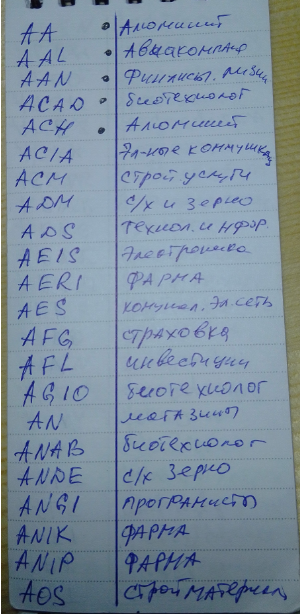 AA • Алюминий
AAL • Авиакомпания
AAN • Финансы. лизинг
ACAD • биотехнолог
ACH • Алюминий
ACIA Эл-ные коммуникац
ACM строй. услуги
ADM с/х и зерно
ADS технол. и нфор.
AEIS Электроника
AERI ФАРМА
AES комунал. эл. сеть
AFG страховка
AFL инвестиции
AGIO биотехнолог
AN магазины
ANAB биотехнолог
ANDE с/х зерно
ANGI програмисты
ANIK ФАРМА
ANIP ФАРМА
AOS строй материал